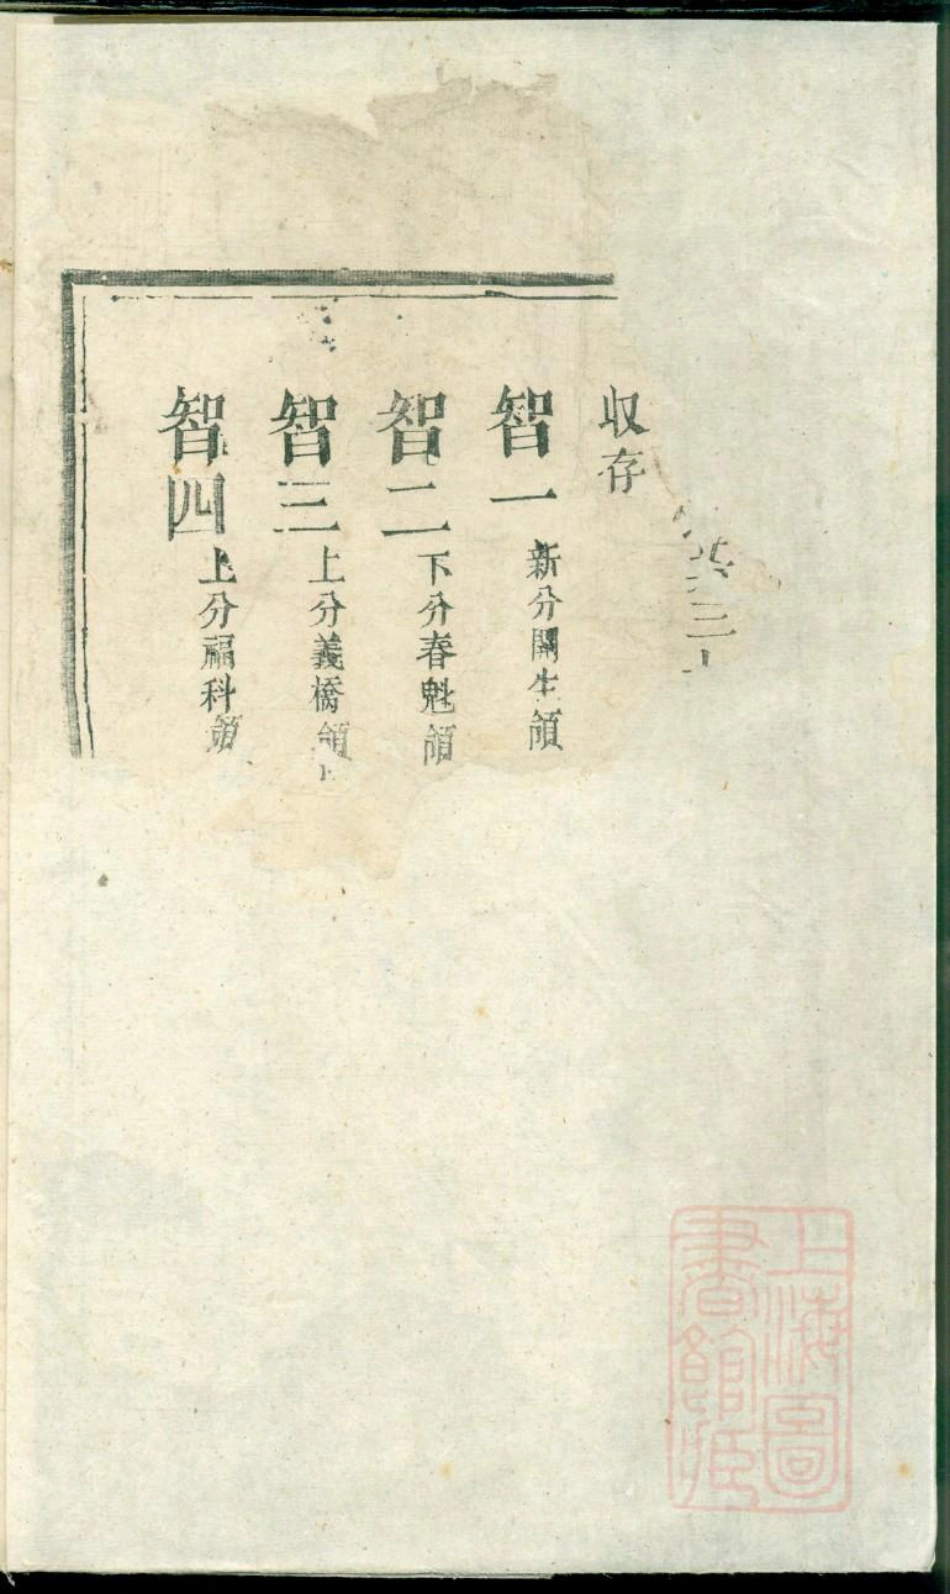 三
収存
智一 新分開生領
智二 下分春魁領
智三 上分義橋領
智四 上分福科領
上海圖
書館藏